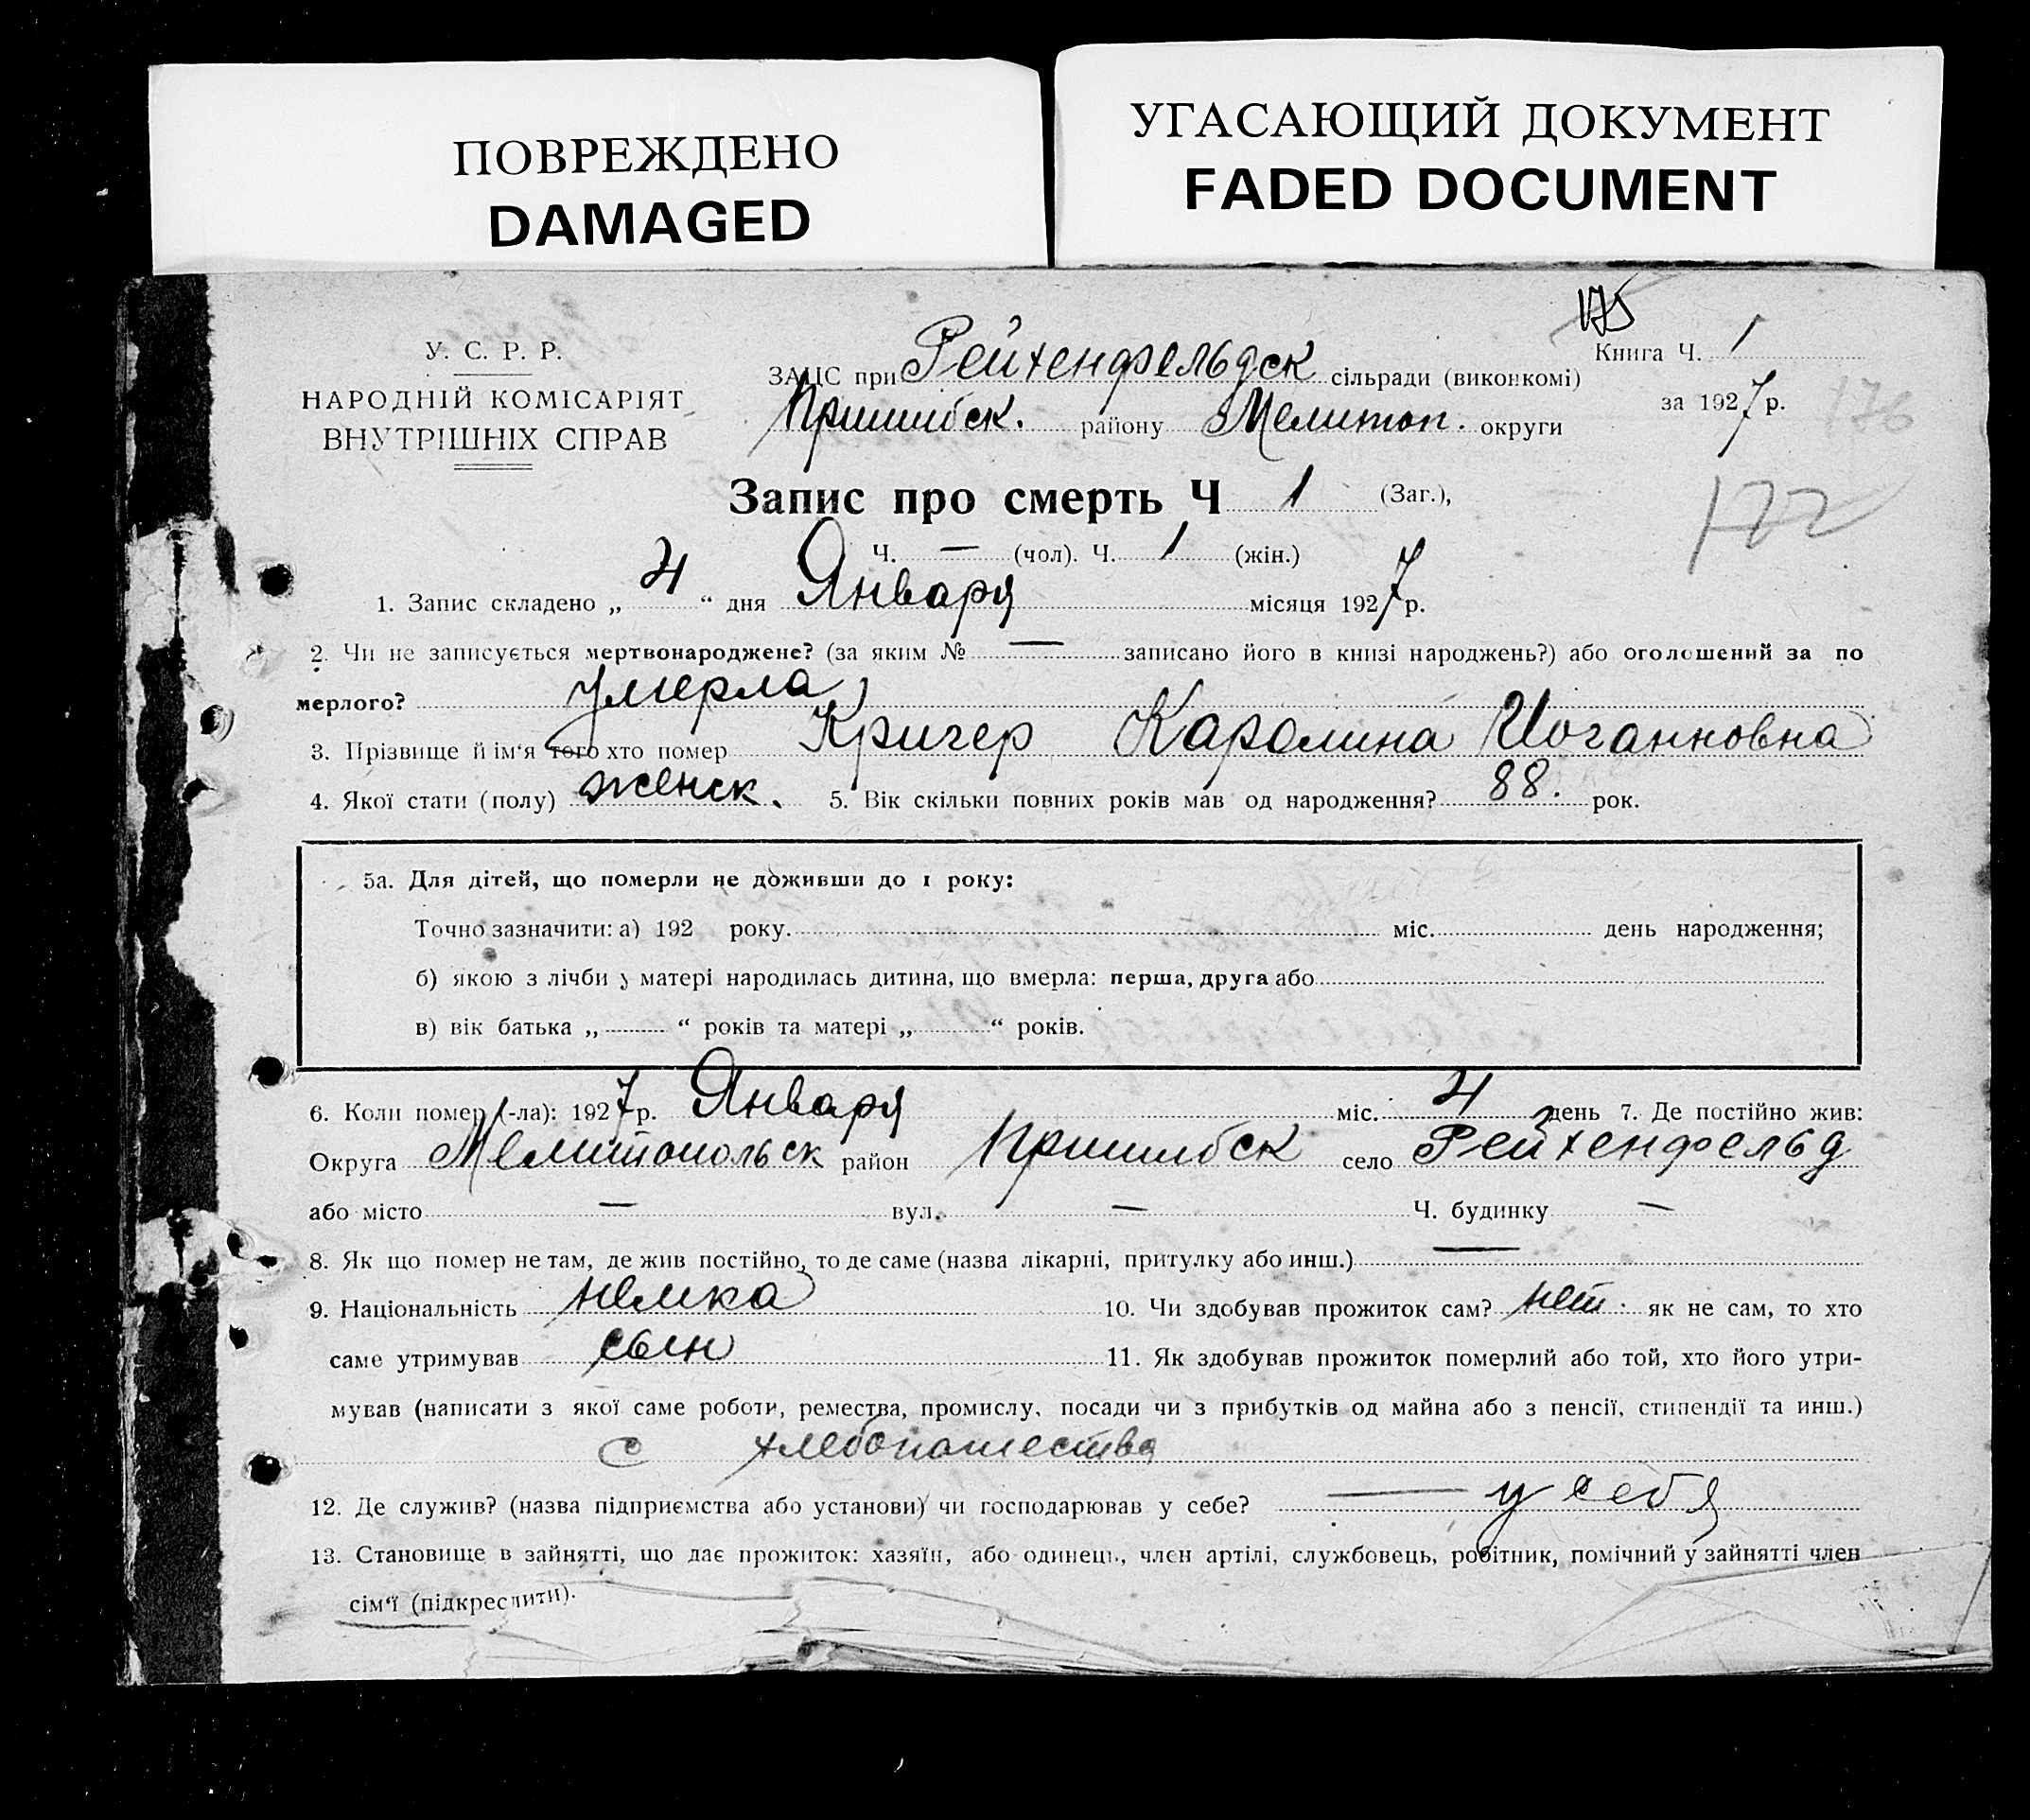 ПОВРЕЖДЕНО
DAMAGED
УГАСАЮЩИЙ ДОКУМЕНТ
FADED DOCUMENT
175
У. С. Р. Р.
НАРОДНІЙ КОМІСАРІЯТ
ВНУТРІШНІХ СПРАВ
ЗАЦС при Рейхенфельдск сільради (виконкомі)
Пришибск. району Мелитоп. округи
Книга Ч. 1
за 1927 р.
176
177
Запис про смерть Ч 1 (Заг.),
Ч. — (чол). Ч. 1 (жін.)
1. Запис складено „ 4 “ дня Января місяця 1927 р.
2. Чи не записується мертвонароджене? (за яким № — записано його в книзі народжень?) або оголошений за по
мерлого? умерла
3. Прізвище й ім'я того хто помер Кригер Каролина Иоганновна
4. Якої стати (полу) женск. 5. Вік скільки повних років мав од народження? 88. рок.
5а. Для дітей, що померли не доживши до 1 року:
Точно зазначити: а) 192 року. міс. день народження;
б) якою з лічби у матері народилась дитина, що вмерла: перша, друга або
в) вік батька „ “ років та матері „ “ років.
6. Коли помер (-ла): 1927 р. Января міс. 4 день 7. Де постійно жив:
Округа Мелитопольск район Пришибск село Рейхенфельд
або місто — вул. — Ч. будинку —
8. Як що помер не там, де жив постійно, то де саме (назва лікарні, притулку або инш.) —
9. Національність немка 10. Чи здобував прожиток сам? нет. як не сам, то хто
саме утримував сын 11. Як здобував прожиток померлий або той, хто його утри-
мував (написати з якої саме роботи, ремества, промислу, посади чи з прибутків од майна або з пенсії, стипендії та инш.)
с хлебопашества
12. Де служив? (назва підприємства або установи) чи господарював у себе? — у себя
13. Становище в зайнятті, що дає прожиток: хазяїн, або одинець, член артілі, службовець, робітник, помічний у зайнятті член
сім'ї (підкреслити).